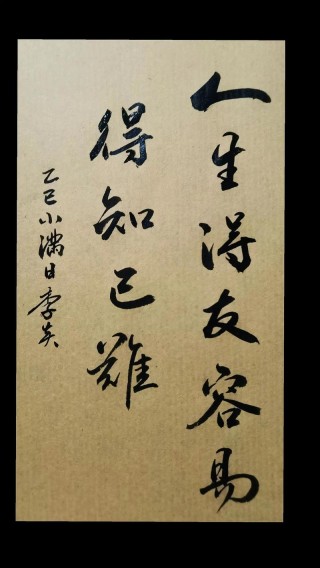 人生得友容易
得知己难
乙巳小满日李英